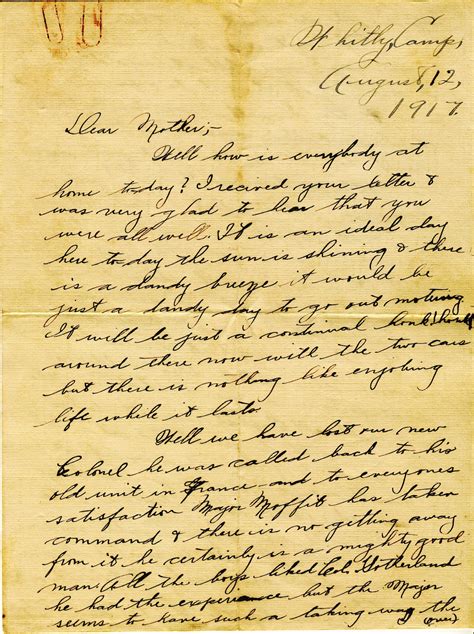 Whitly, Camp,
August, 12,
1917.
Dear Mother;-
Well how is everybody at
home to-day? I recived your letter &
was very glad to hear that you
were all well. It is an ideal day
here to-day the sun is shining & there
is a dandy breeze it would be
just a dandy day to go out motoring
It will be just a continual honk! honk!
around there now with the two cars
but there is nothing like enjoying
life while it lasts.
Well we have lost our new
Colonel he was called back to his
old unit in France and to everyones
satisfaction Major Moffit has taken
command & there is no getting away
from it he certainly is a mighty good
man. All the boys liked Col. Sutherland
he had the experience but the Major
seems to have such a taking way the
(over)